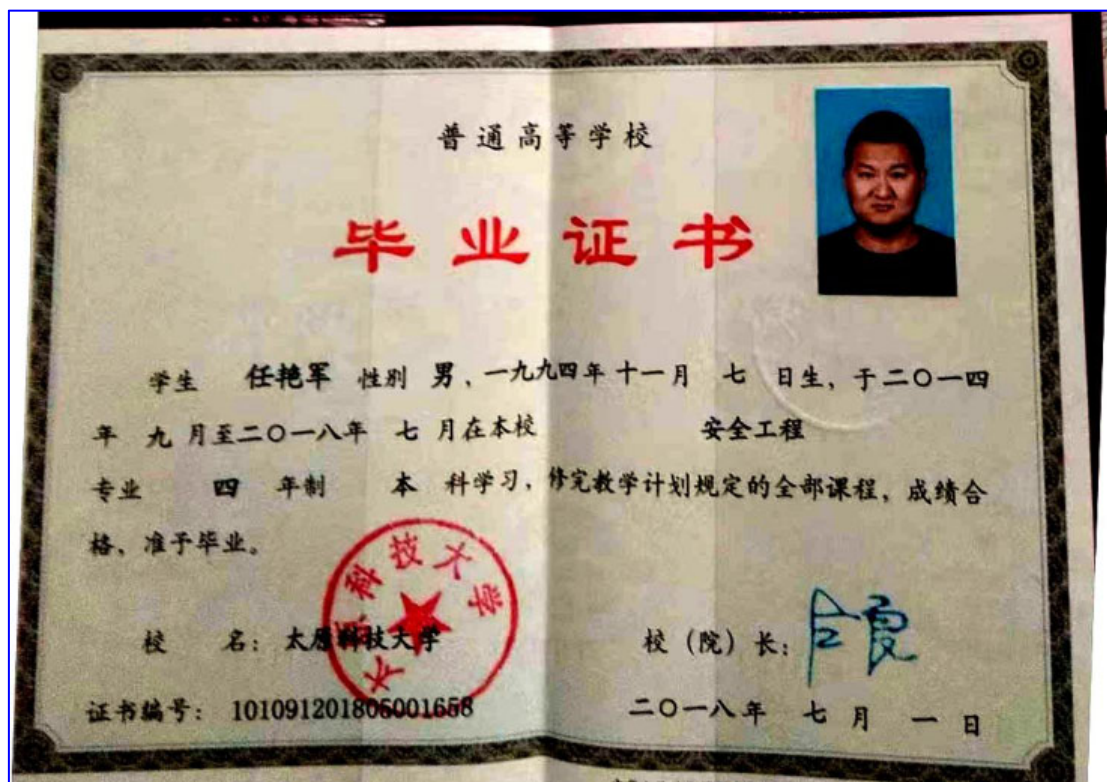 普通高等学校
毕业证书
学生 任艳军 性别 男、一九九四年十一月 七 日生，于二〇一四
年 九 月至二〇一八年 七 月在本校 安全工程
专业 四 年制 本 科学习，修完教学计划规定的全部课程，成绩合
格、准予毕业。
太原科技大学
校 名：太原科技大学 校（院）长：
证书编号：101091201805001658 二〇一八年 七 月 一 日